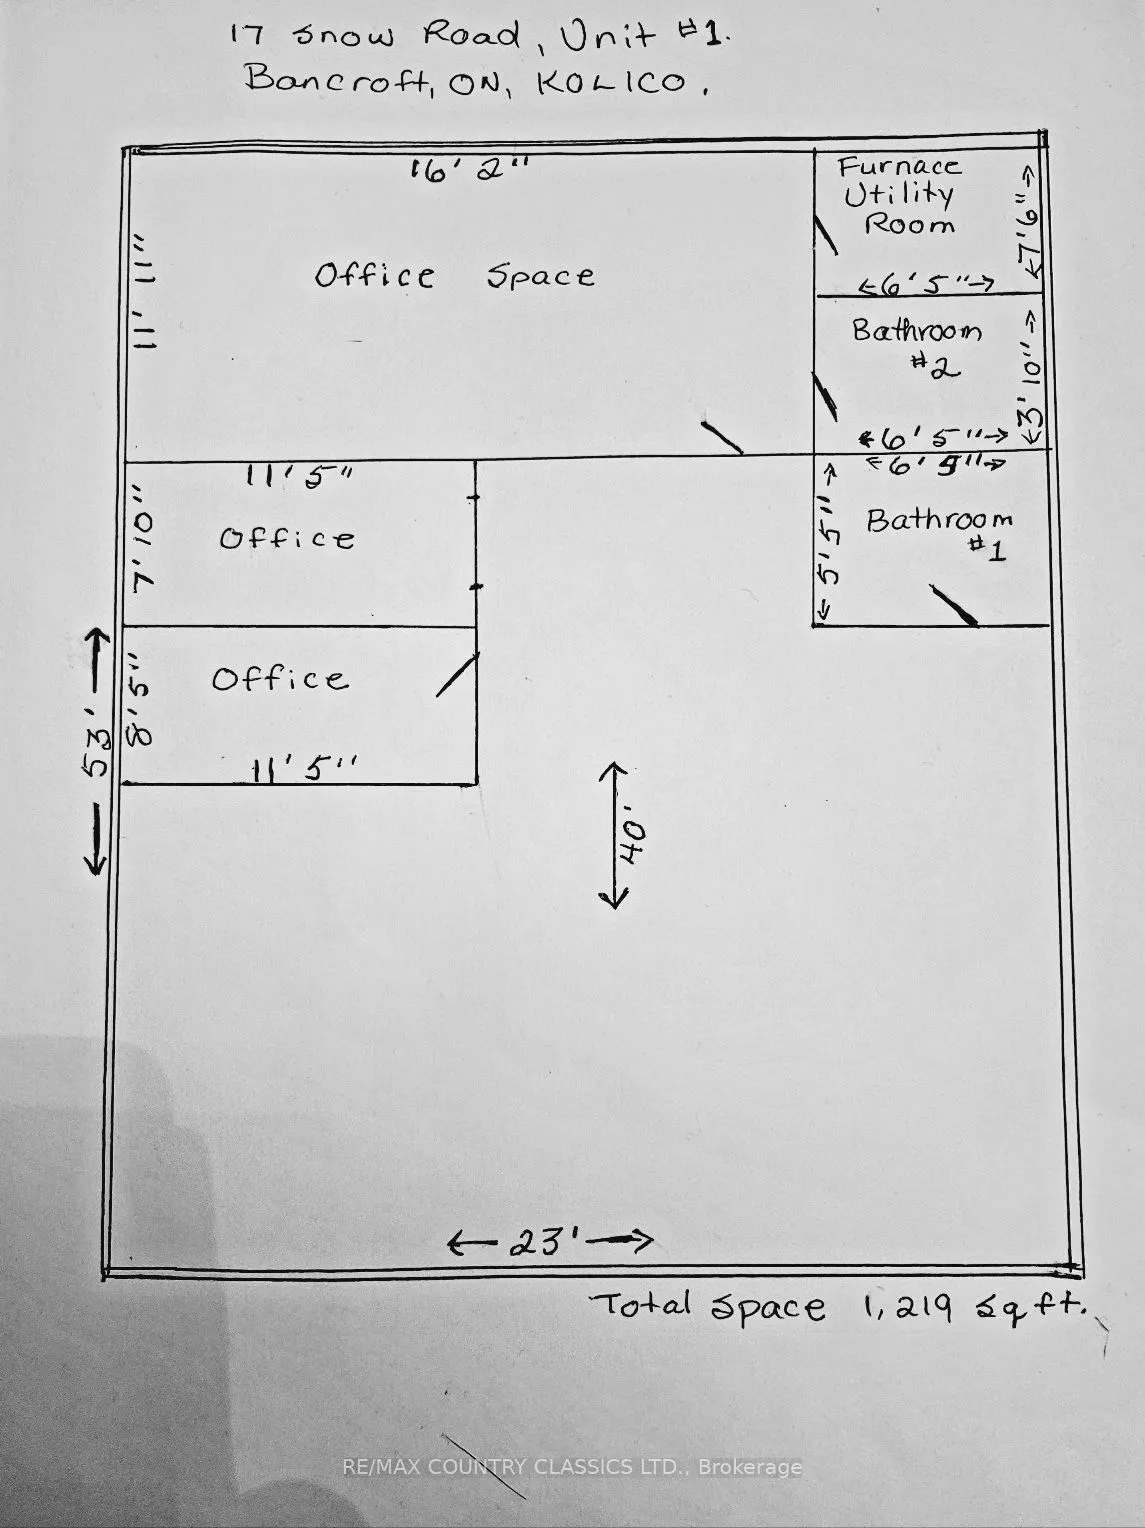 17 Snow Road, Unit #1.
Bancroft, ON, K0L1C0.
16' 2"
Furnace
Utility
Room
7'6"
11' 11"
Office Space
6' 5"
Bathroom
#2
3' 10"
6' 5"
6' 5"
11' 5"
7' 10"
Office
5' 5"
Bathroom
#1
53'
8' 5"
Office
11' 5"
40'
23'
Total Space 1,219 sq ft.
RE/MAX COUNTRY CLASSICS LTD., Brokerage